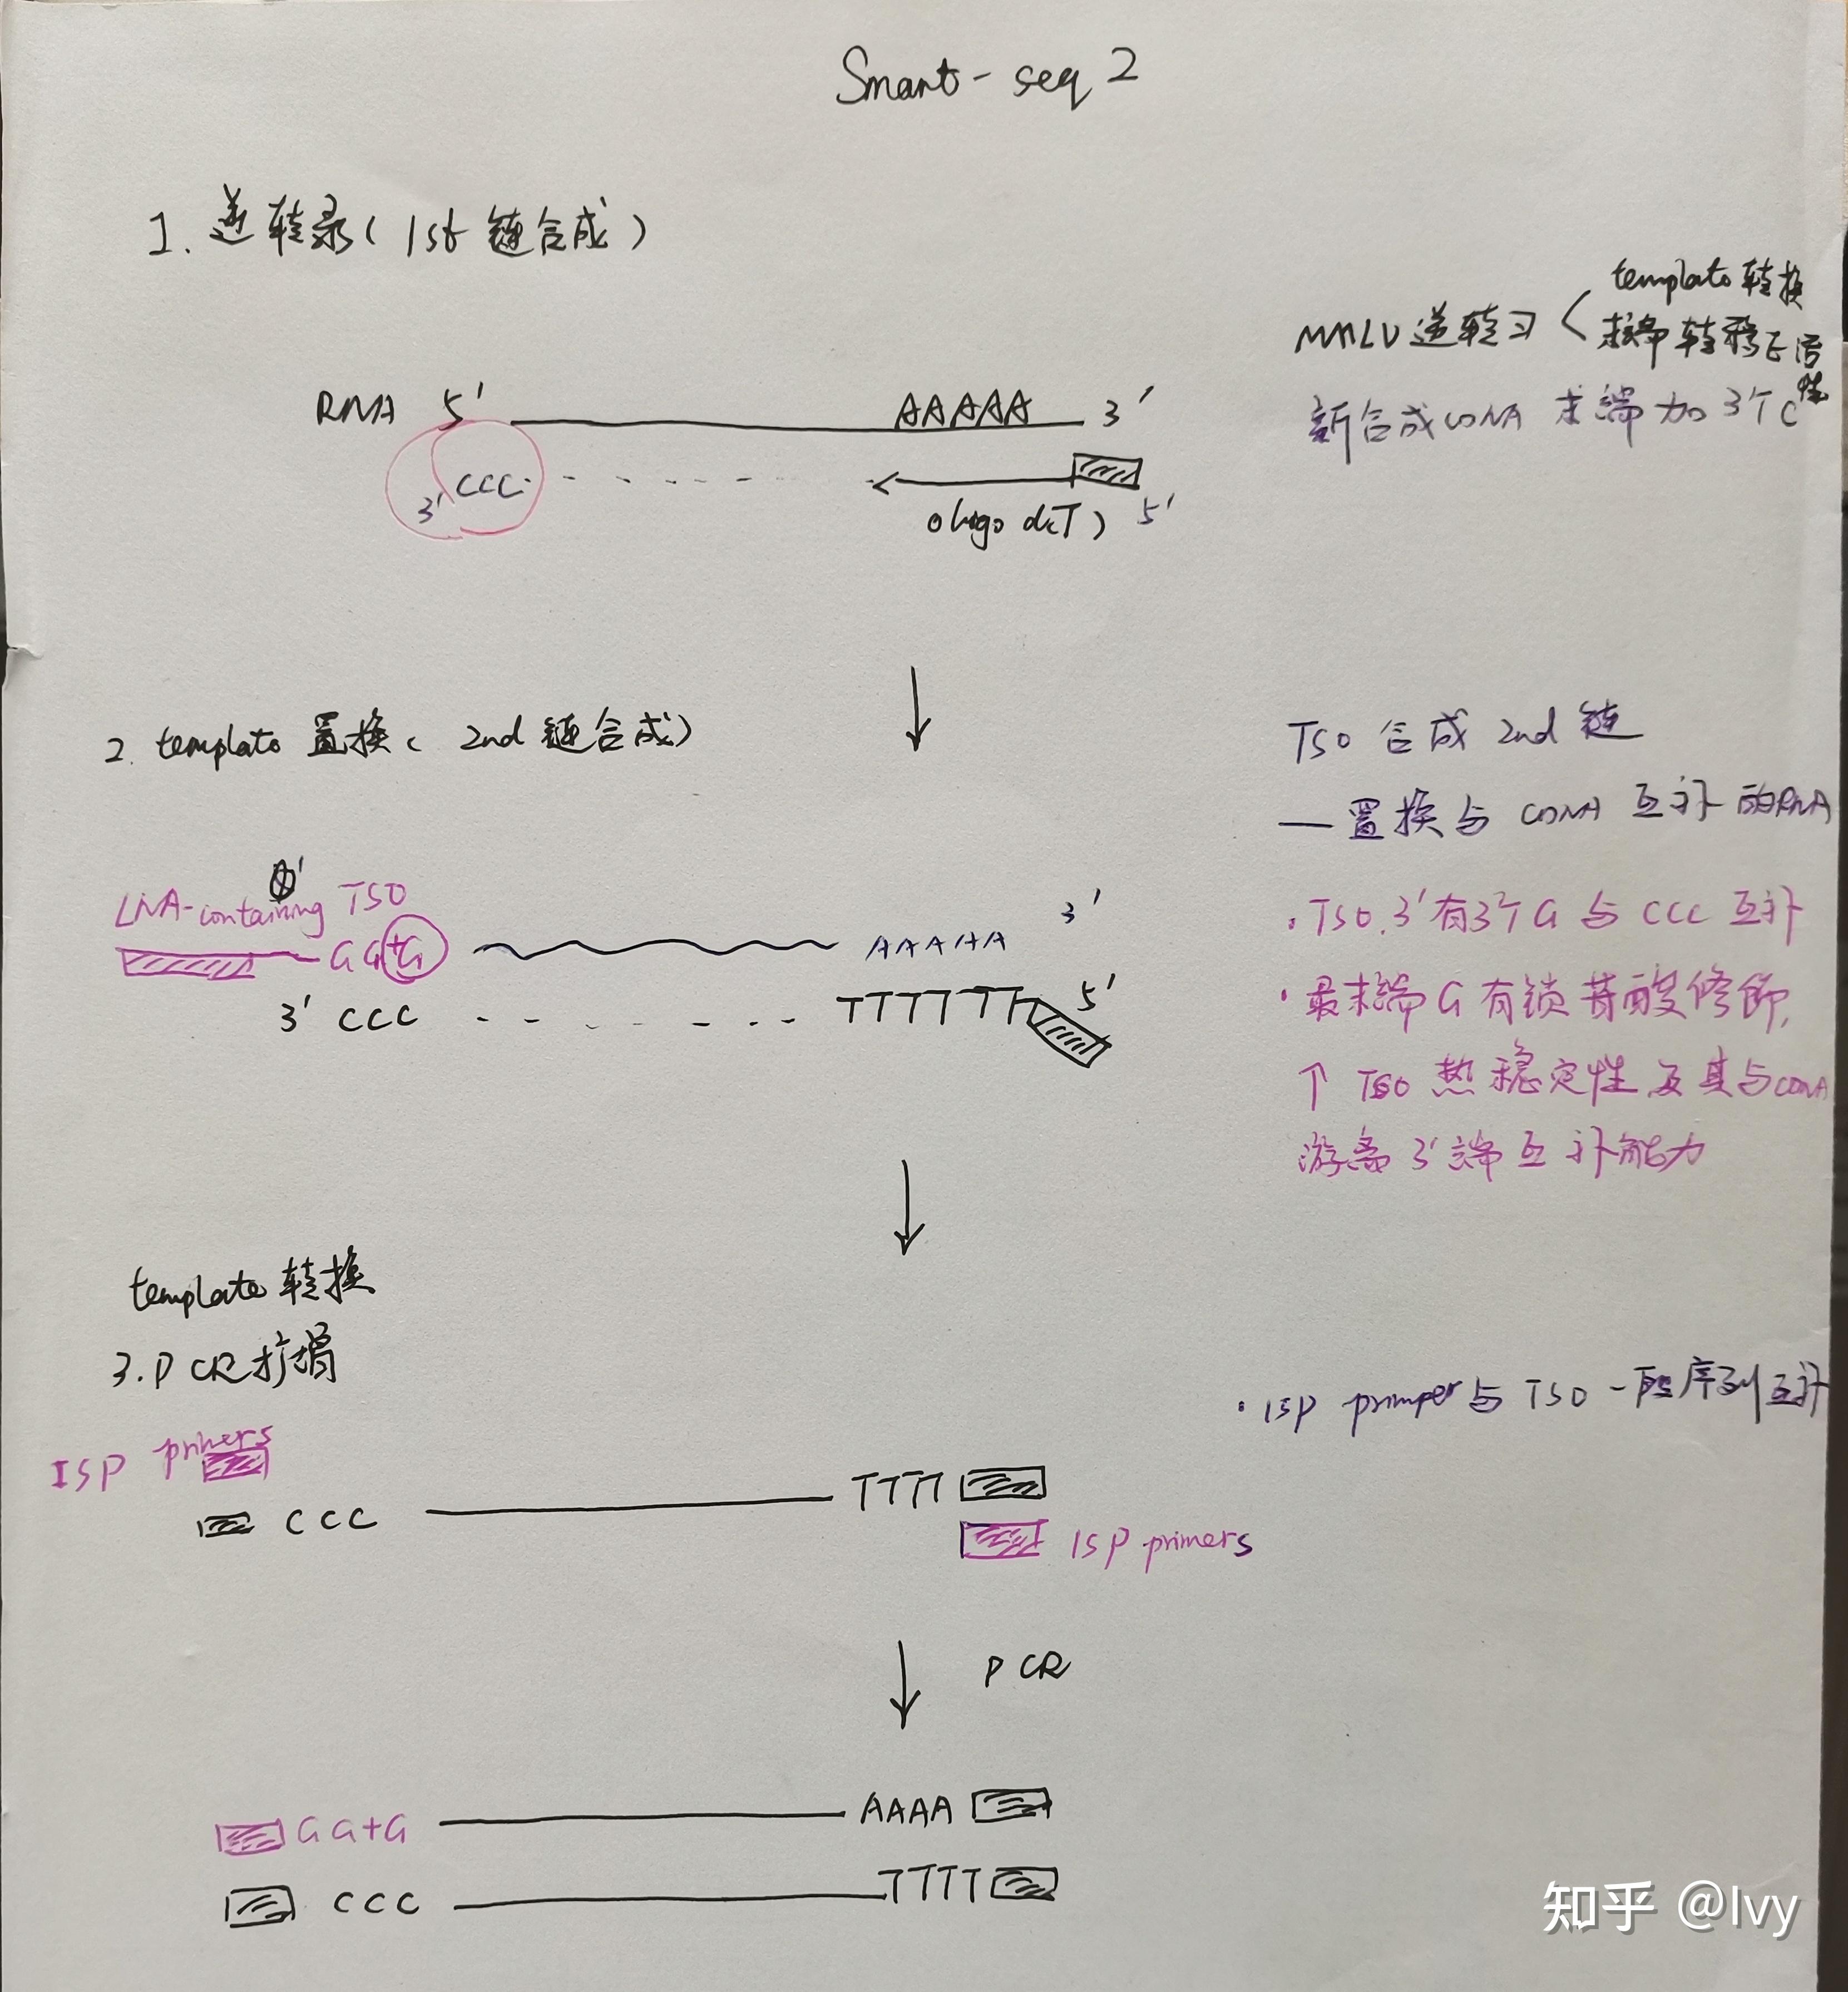 Smart-seq 2
1. 逆转录(1st 链合成)
template 转换
MMLV 逆转习
末端转移E活性
RNA 5' AAAAA 3'
新合成cDNA 末端加3个C
3' CCC
oligo d(T) 5'
2. template 置换(2nd 链合成)
TSO 合成 2nd 链
—置换与 cDNA 互补的RNA
LNA-containing TSO
3'
·TSO.3'有3个G与CCC互补
GG+G AAAAA
3' CCC TTTTTT 5'
·最末端G有锁苷酸修饰,
↑ TSO 热稳定性及其与cDNA
游离3'端互补能力
template 转换
3. PCR扩增
·ISP primper与TSO一段序列互补
ISP primers
TTTT
CCC
ISP primers
PCR
GG+G AAAA
CCC TTTT
知乎 @Ivy